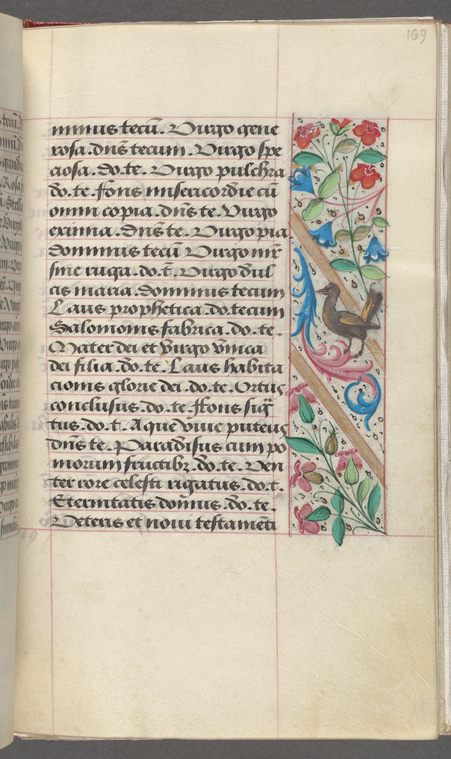 169
minus tecū. Virgo gene
rosa. dn̄s tecum. Virgo spe
ciosa. do. te. Virgo pulchra
do. te. Fons misericordie cū
omni copia. dn̄s te. Virgo
eximia. dn̄s te. Virgo pia
dominus tecū Virgo
sine ruga. do. t. Virgo dul
cis maria. dominus tecum
Laus prophetica. do tecum
Salomonis fabrica. do. te.
Mater dei et virgo vnica
dei filia. do. te. Laus habita
cionis glorie dei. do. te. Ortus
conclusus. do. te. Fons siḡ
tus. do. t. Aque viue puteus
dn̄s te. Paradisus cum po
morum fructibꝫ. do. te. Ven
ter rore celesti rigatus. do. t.
Eternitatis domus. do. te.
Veteris et noui testamēti